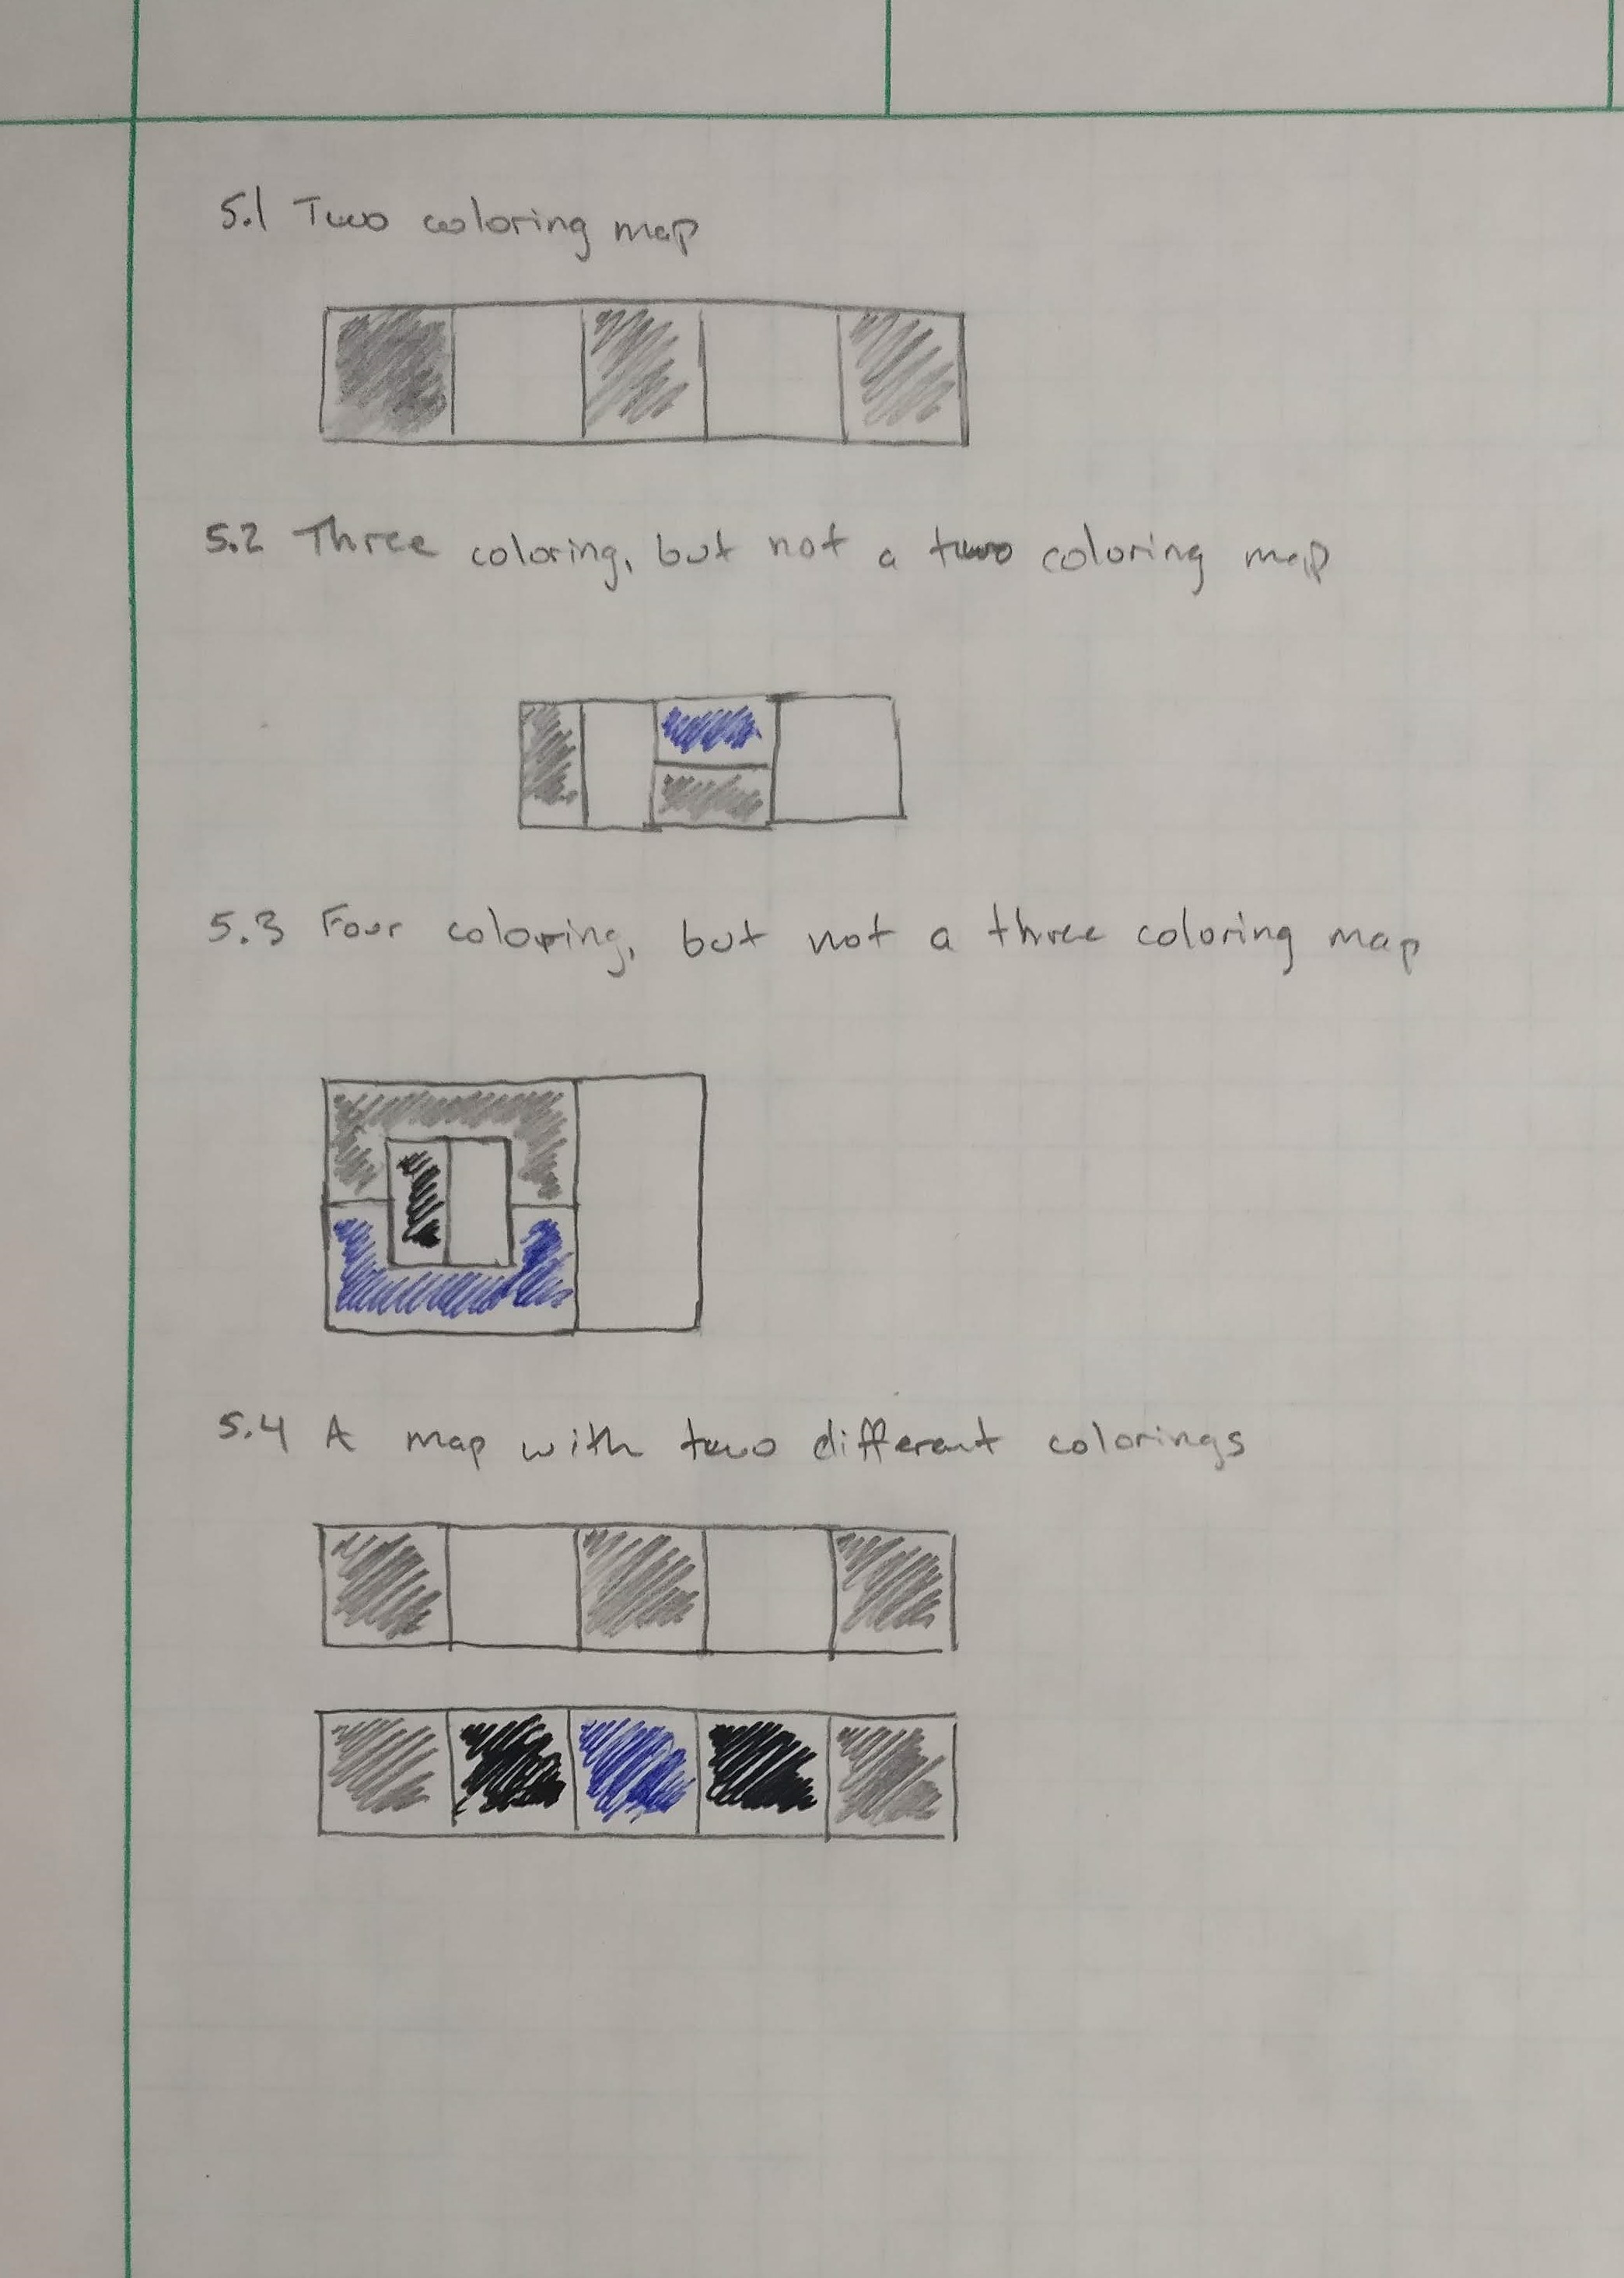 5.1 Two coloring map
5.2 Three coloring, but not a two coloring map
5.3 Four coloring, but not a three coloring map
5.4 A map with two different colorings